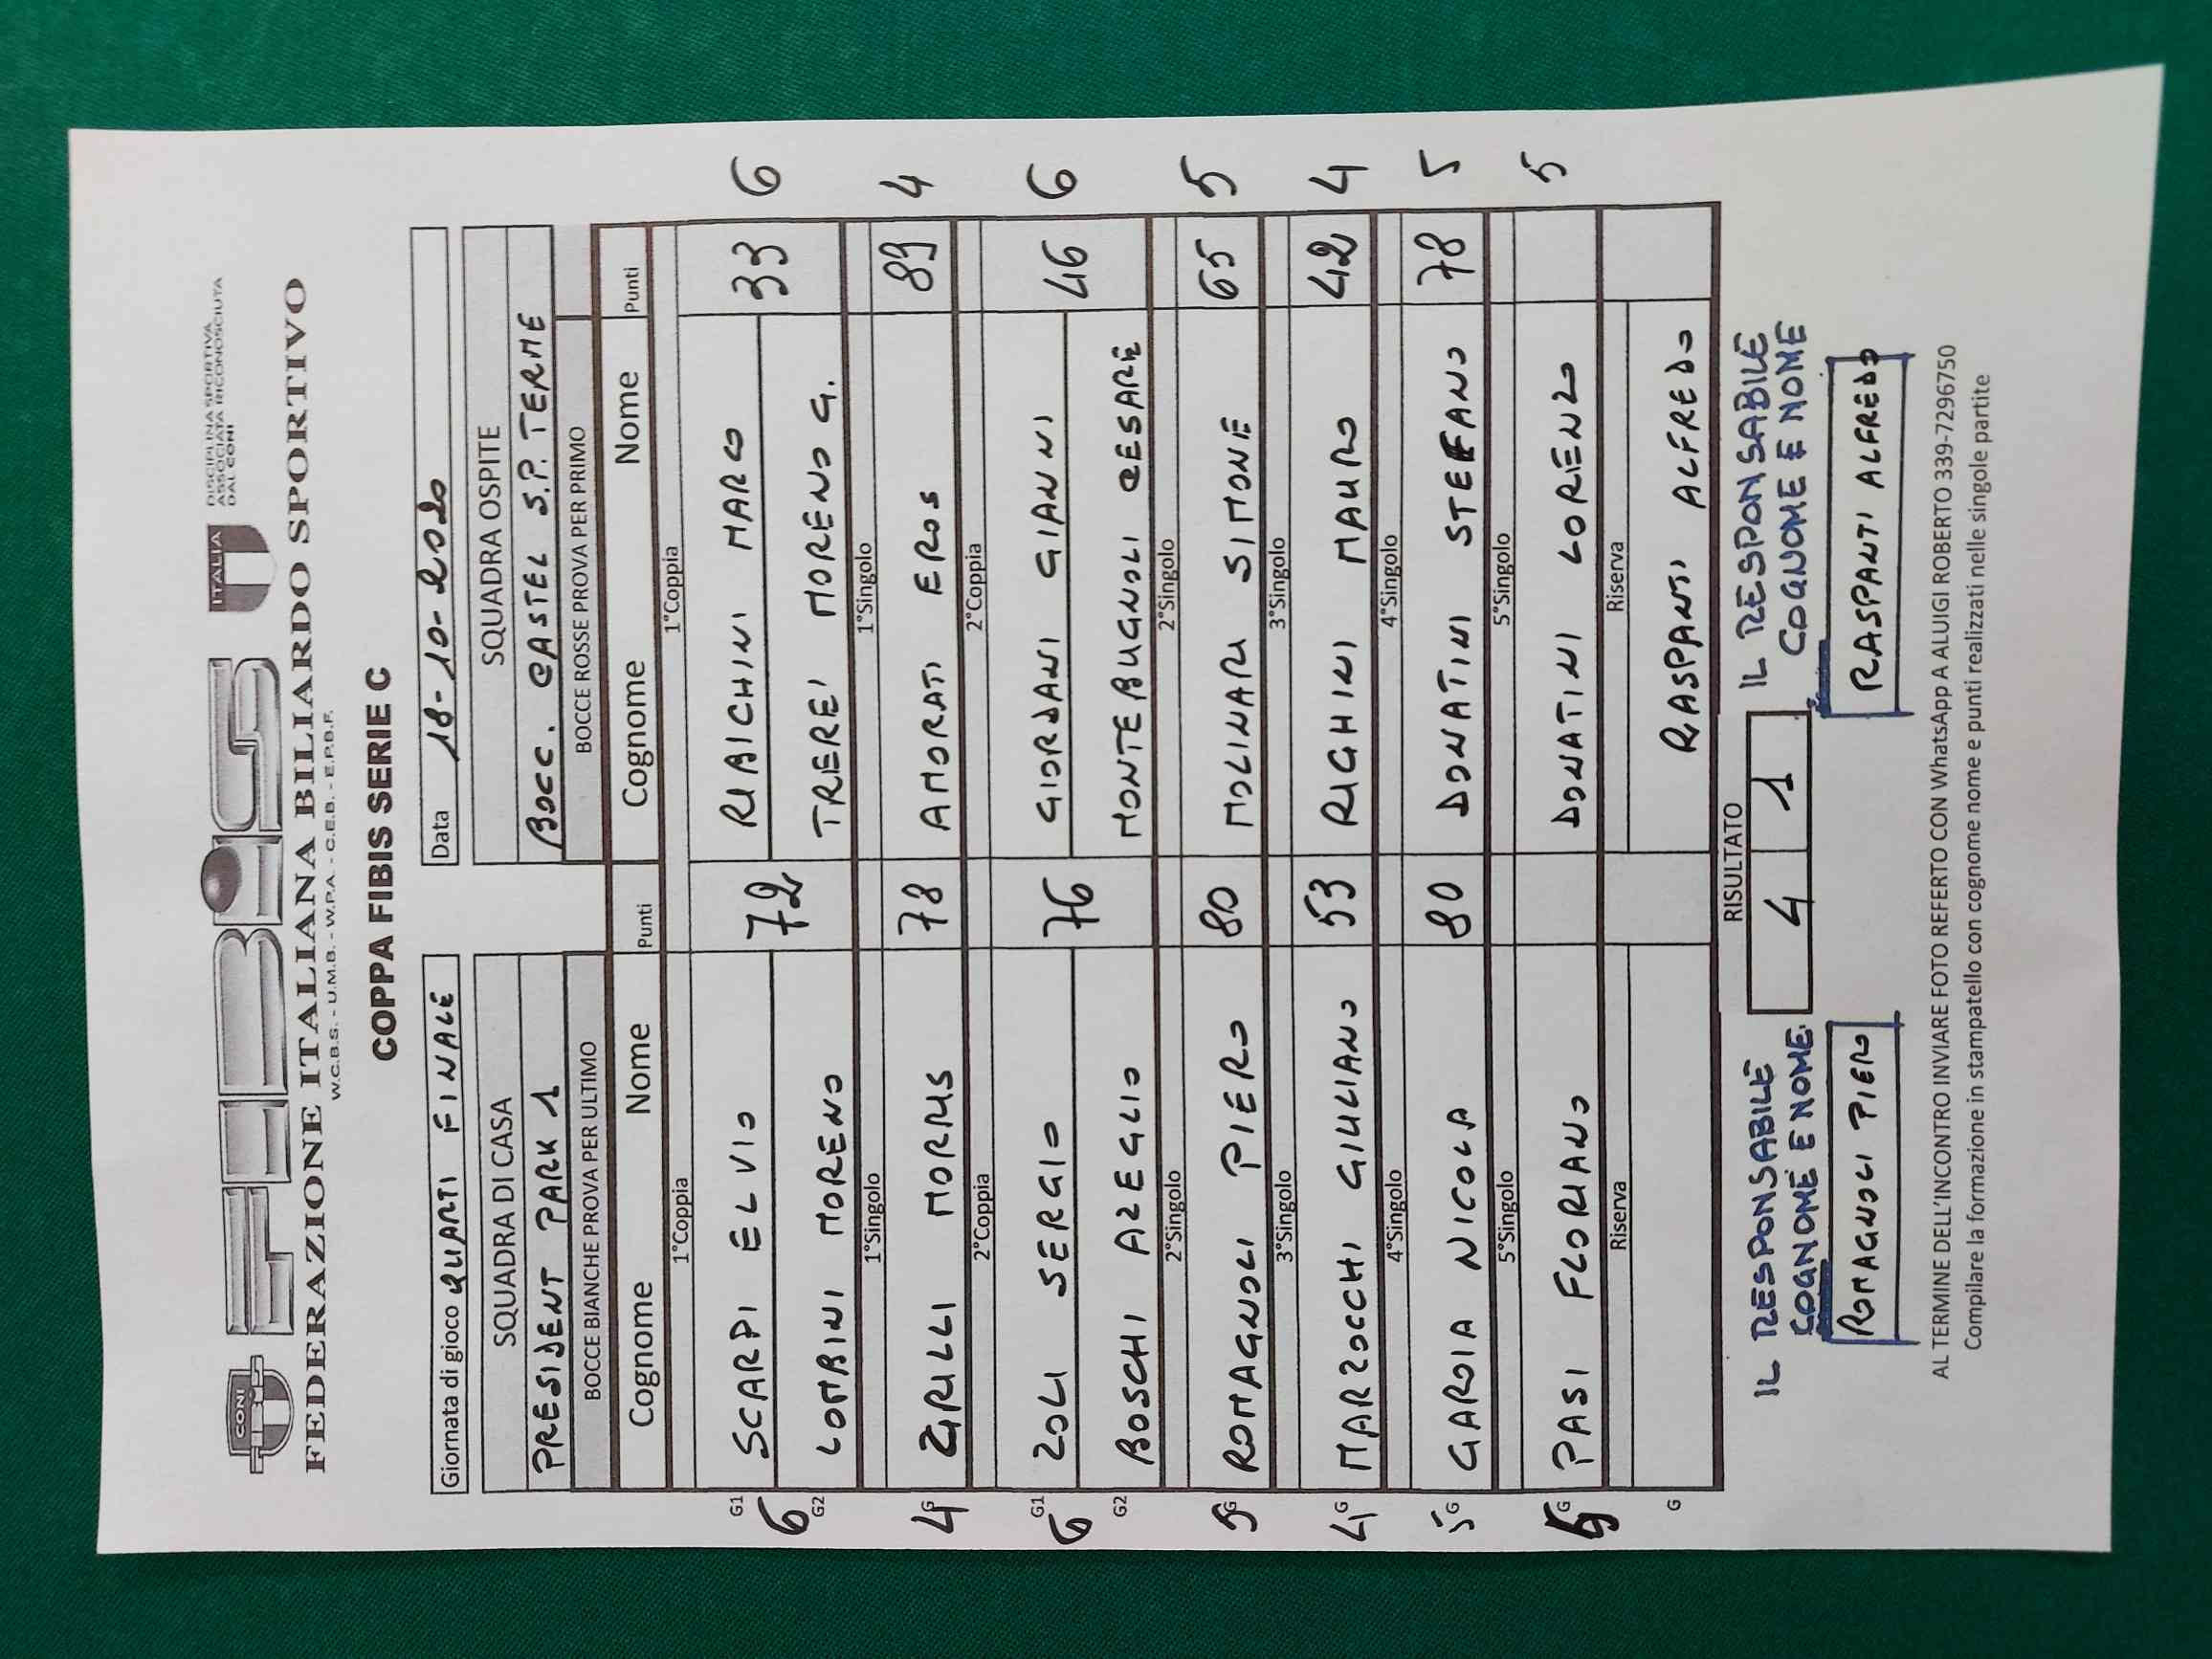 CONI
FIBiS
ITALIA
DISCIPLINA SPORTIVA
ASSOCIATA RICONOSCIUTA
DAL CONI
FEDERAZIONE ITALIANA BILIARDO SPORTIVO
W.C.B.S. - U.M.B. - W.P.A. - C.E.B. - E.P.B.F.
COPPA FIBIS SERIE C
Giornata di gioco QUARTI FINALE Data 18-10-2020
SQUADRA DI CASA SQUADRA OSPITE
PRESIDENT PARK 1 BOCC. CASTEL S.P. TERME
BOCCE BIANCHE PROVA PER ULTIMO BOCCE ROSSE PROVA PER PRIMO
Cognome Nome Punti Cognome Nome Punti
1°Coppia 1°Coppia
G1 SCARPI ELVIO RIBICHINI MARCO
6 72 33 6
G2 LOMBINI MORENO TRERE' MORENO G.
1°Singolo 1°Singolo
4 G ZRILLI MORRIS 78 AMORATI EROS 89 4
2°Coppia 2°Coppia
G1 ZOLI SERGIO GIORDANI GIANNI
6 76 46 6
G2 BOSCHI AZEGLIO MONTEBUGNOLI CESARE
2°Singolo 2°Singolo
5 G ROMAGNOLI PIERO 80 MOLINARI SIMONE 65 5
3°Singolo 3°Singolo
4 G MARZOCCHI GIULIANO 53 RIGHINI MAURO 42 4
4°Singolo 4°Singolo
5 G GARDIA NICOLA 80 DONATINI STEFANO 78 5
5°Singolo 5°Singolo
5 G PASI FLORIANO DONATINI LORENZO 5
Riserva Riserva
G RASPANTI ALFREDO
RISULTATO
4 1
IL RESPONSABILE IL RESPONSABILE
COGNOME E NOME COGNOME E NOME
ROMAGNOLI PIERO RASPANTI ALFREDO
AL TERMINE DELL'INCONTRO INVIARE FOTO REFERTO CON WhatsApp A ALUIGI ROBERTO 339-7296750
Compilare la formazione in stampatello con cognome nome e punti realizzati nelle singole partite